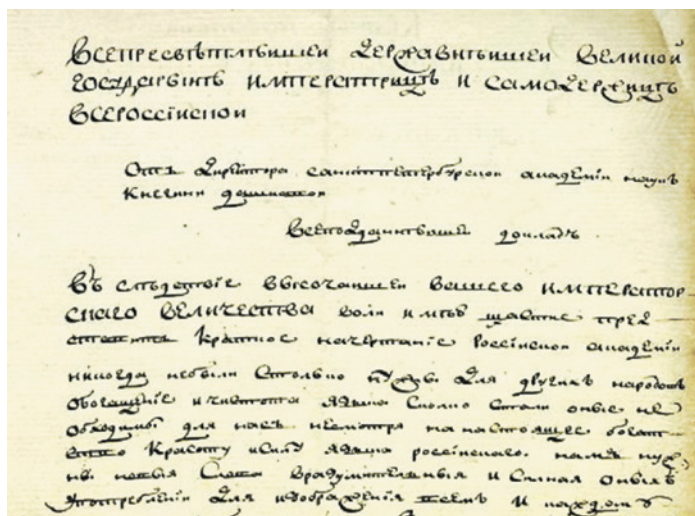 Всепресвѣтлѣйшей державнѣйшей великой
государынѣ императрицѣ и самодержицѣ
всероссiйской
Отъ директора санктпетербургской академiи наукъ
Княгини дашковой
всеподданнѣйшей докладъ
Въ слѣдствiе высочайшей вашего император-
скаго величества воли имѣв щастие пред-
Краткое начертанiе россiйской академiи
никогда небыли столько нужны для другихъ народовъ
обогащенiе и чистота языка сколко стали оные не
обходимы для насъ несмотря на настоящее богат-
ство красоту и силу языка россiйскаго. намъ нуж-
ны новыя слова вразумительныя и силная оныхъ
употребленiи для изображенiя всемъ и каждому